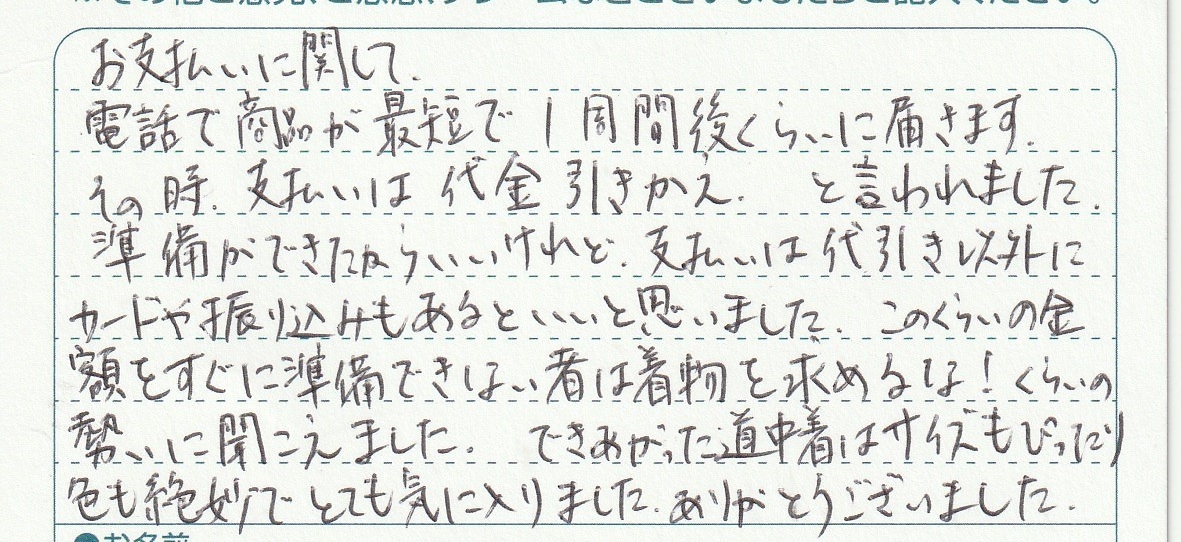 お支払いに関して.
電話で商品が最短で1周間後くらいに届きます.
その時.支払いは代金引きかえ.と言われました.
準備ができたならいいけれど.支払いは代引き以外に
カードや振り込みもあるといいと思いました.このくらいの金
額をすぐに準備できない者は着物を求めるな!くらいの
勢いに聞こえました.できあがった道中着はサイズもぴったり
色も絶妙でとても気に入りました.ありがとうございました.